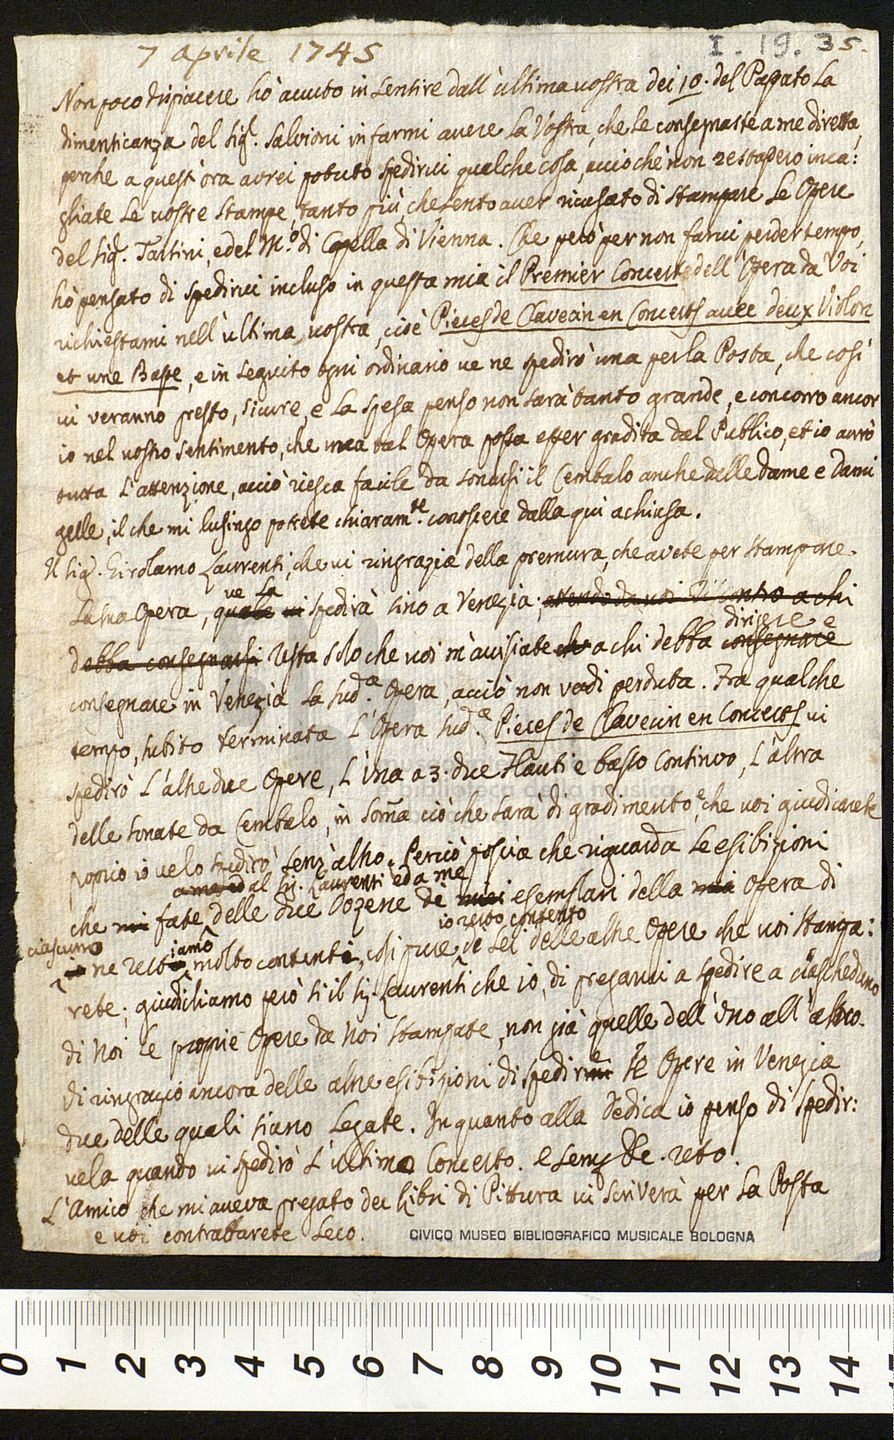 7 Aprile 1745
I. 19. 35.
Non poco dispiacere hò avuto in sentire dall'ultima vostra dei 10. del Passato La
dimenticanza del Sig.r Salvioni in farmi avere La Vostra, che le consegnaste a me diretta,
perche a quest'ora avrei potuto spedirvi qualche cosa, acciò che non restassero inca:
gliate Le vostre stampe, tanto più, che sento aver ricusato di stampare Le Opere
del Sig.r Tartini, e del M.o di Capella di Vienna. Che però per non farvi perder tempo,
hò pensato di spedirvi incluso in questa mia il Premier Concert dell'Opera da Voi
richiestami nell'ultima vostra, cioè Pieces de Clavecin en Concerts avec deux Violon
et une Basse, e in seguito ogni ordinario ve ne spedirò una per la Posta, che così
vi veranno presto, sicure, e La spesa penso non sarà tanto grande, e concorro ancor
io nel vostro sentimento, che una tal Opera possa esser gradita dal Publico, et io avrò
tutta L'attenzione, acciò riesca facile da sonarsi il Cembalo anche dalle Dame e Dami
gelle, il che mi lusingo potrete chiaram.te conoscere dalla qui achiusa.
Il Sig.r Girolamo Laurenti, che vi ringrazia della premura, che avete per stampare
La sua Opera, quale vi ve La spedirà sino a Venezia; avendo da voi riscontro a chi
debba consegnarsi resta solo che voi m'avvisiate che a chi debba consegnare dirigere e
consegnare in Venezia La sud.a Opera, acciò non vadi perduta. Fra qualche
tempo, subito terminata L'Opera sud.a Pieces de Clavecin en Concerts vi
spedirò L'altre due Opere, L'una a 3. due Flauti e basso Continuo, L'altra
delle sonate da Cembalo, in Somma ciò che sarà di gradimento, e che voi giudicarete
proprio io ve lo spedirò senz'altro. Perciò poscia che riguarda Le esibizioni
che mi fate a me ed al Sig. Laurenti ed a me delle due Dozene de miei esemplari della mia Opera di
ciascuno io ne restiamo molto contenti, così pure io resto contento de sei delle altre Opere che voi stampa:
rete; giudichiamo però sì il Sig. Laurenti che io, di pregarvi a spedire a ciascheduno
di Noi Le proprie Opere da Noi stampate, non già quelle dell'Uno all'altro.
Vi ringrazio ancora delle altre esibizioni di spedirne Le Opere in Venezia
due delle quali siano Legate. In quanto alla Dedica io penso di spedir:
vela quando vi spedirò L'ultimo Concerto. e sens'altro resto.
L'Amico che mi aveva pregato dei Libri di Pittura vi scriverà per La Posta
e voi contrattarete seco.
CIVICO MUSEO BIBLIOGRAFICO MUSICALE BOLOGNA
0 1 2 3 4 5 6 7 8 9 10 11 12 13 14